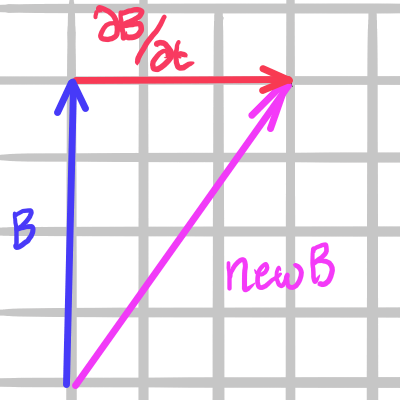 ∂B/∂t
B
new B